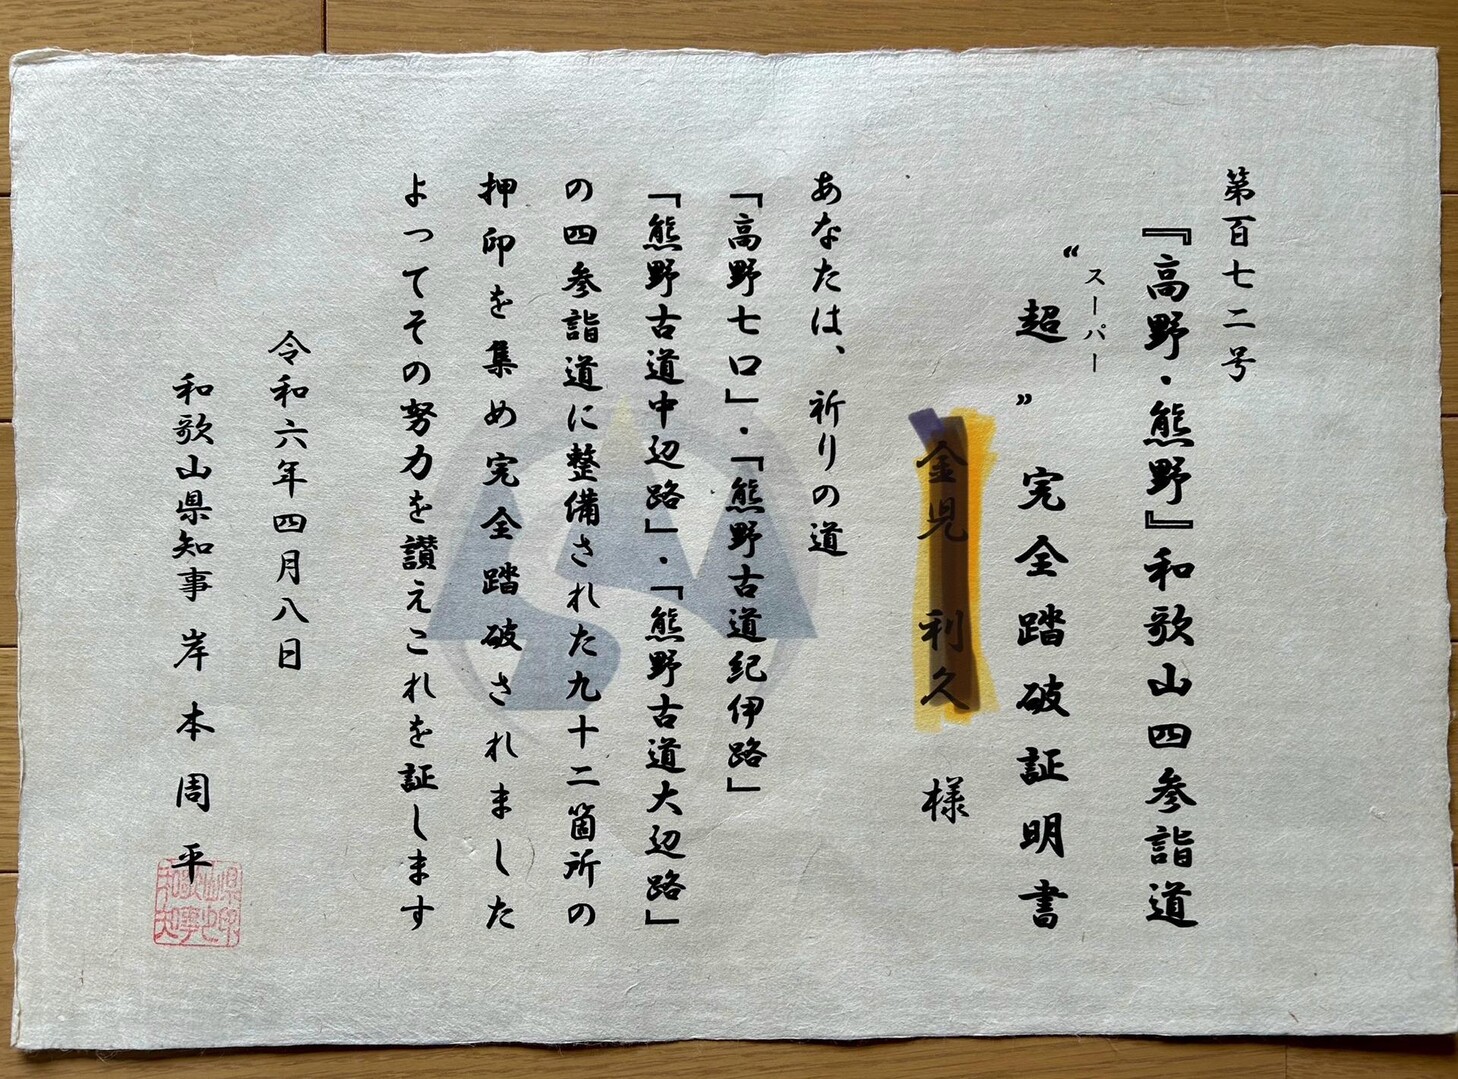 第百七二号
『高野・熊野』和歌山四参詣道
スーパー
“超”完全踏破証明書
金児 利久 様
あなたは、祈りの道
「高野七口」・「熊野古道紀伊路」
「熊野古道中辺路」・「熊野古道大辺路」
の四参詣道に整備された九十二箇所の
押印を集め完全踏破されました
よってその努力を讃えこれを証します
令和六年四月八日
和歌山県知事 岸本周平